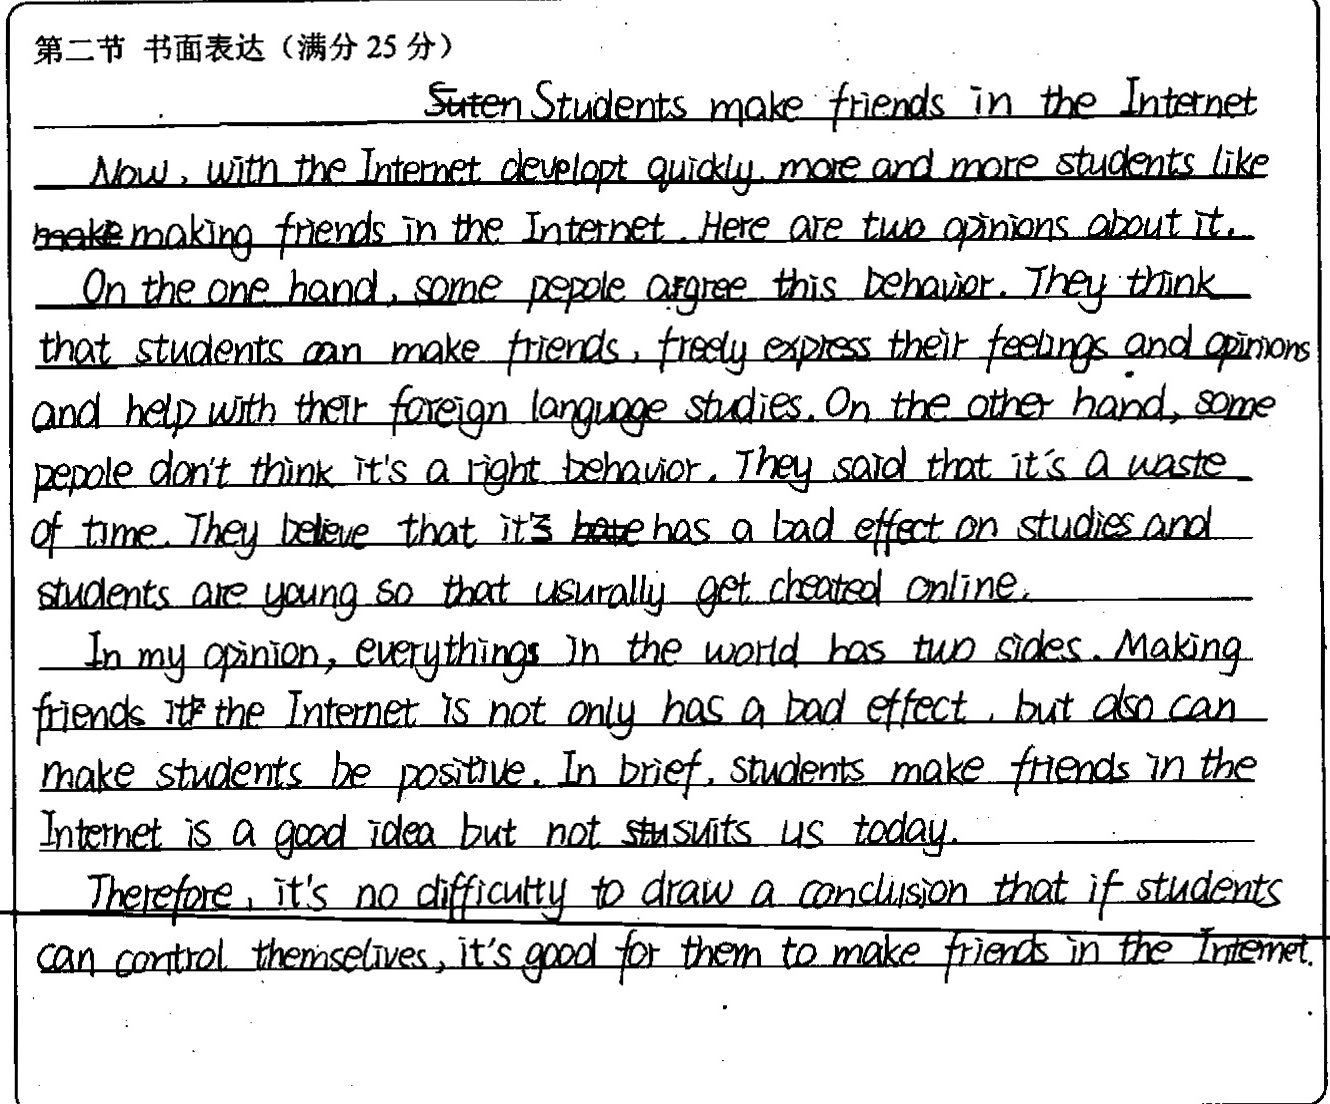 第二节 书面表达（满分 25 分）
Suten Students make friends in the Internet
Now, with the Internet developt quickly, more and more students like
make making friends in the Internet. Here are two opinions about it.
On the one hand, some pepole argree this behavior. They think
that students can make friends, freely express their feelings and opinions
and help with their foreign language studies. On the other hand, some
pepole don't think it's a right behavior. They said that it's a waste
of time. They believe that it's hate has a bad effect on studies and
students are young so that usurally get cheated online.
In my opinion, everythings in the world has two sides. Making
friends the Internet is not only has a bad effect, but also can
make students be positive. In brief, students make friends in the
Internet is a good idea but not stu suits us today.
Therefore, it's no difficulty to draw a conclusion that if students
can control themselives, it's good for them to make friends in the Internet.